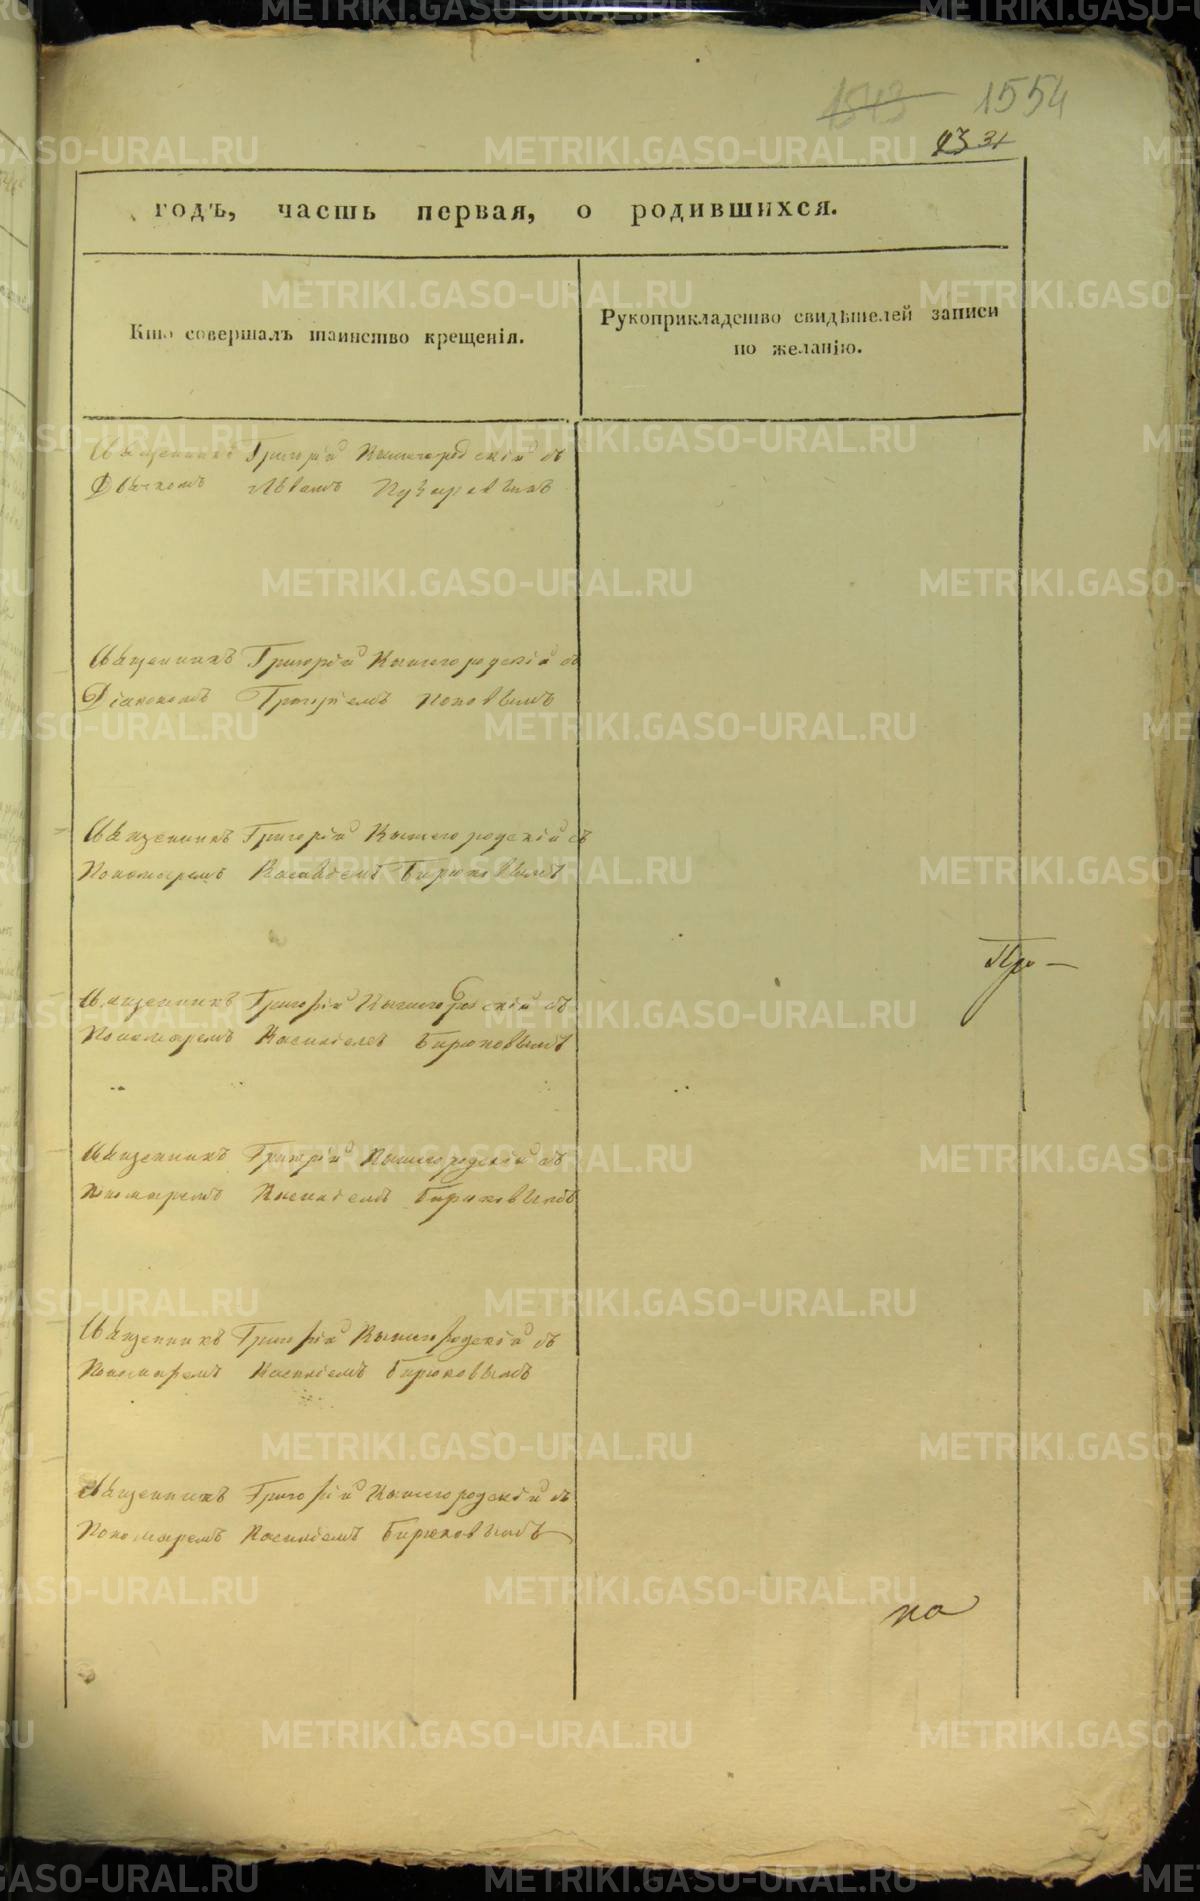 1543 1554
23 31
годъ, часть первая, о родившихся.
Кто совершалъ таинство крещенія.
Рукоприкладство свидѣтелей записи
по желанію.
Священникъ Григорій Вышегородскій съ
Дьячкомъ Львомъ Пузыревымъ
Священникъ Григорій Вышегородскій съ
Діакономъ Григоріемъ Поповымъ
Священникъ Григорій Вышегородскій съ
Пономаремъ Василіемъ Бирюковымъ
Священникъ Григорій Вышегородскій съ
Пономаремъ Василіемъ Бирюковымъ
Священникъ Григорій Вышегородскій съ
Пономаремъ Василіемъ Бирюковымъ
Священникъ Григорій Вышегородскій съ
Пономаремъ Василіемъ Бирюковымъ
Священникъ Григорій Вышегородскій съ
Пономаремъ Василіемъ Бирюковымъ
METRIKI.GASO-URAL.RU